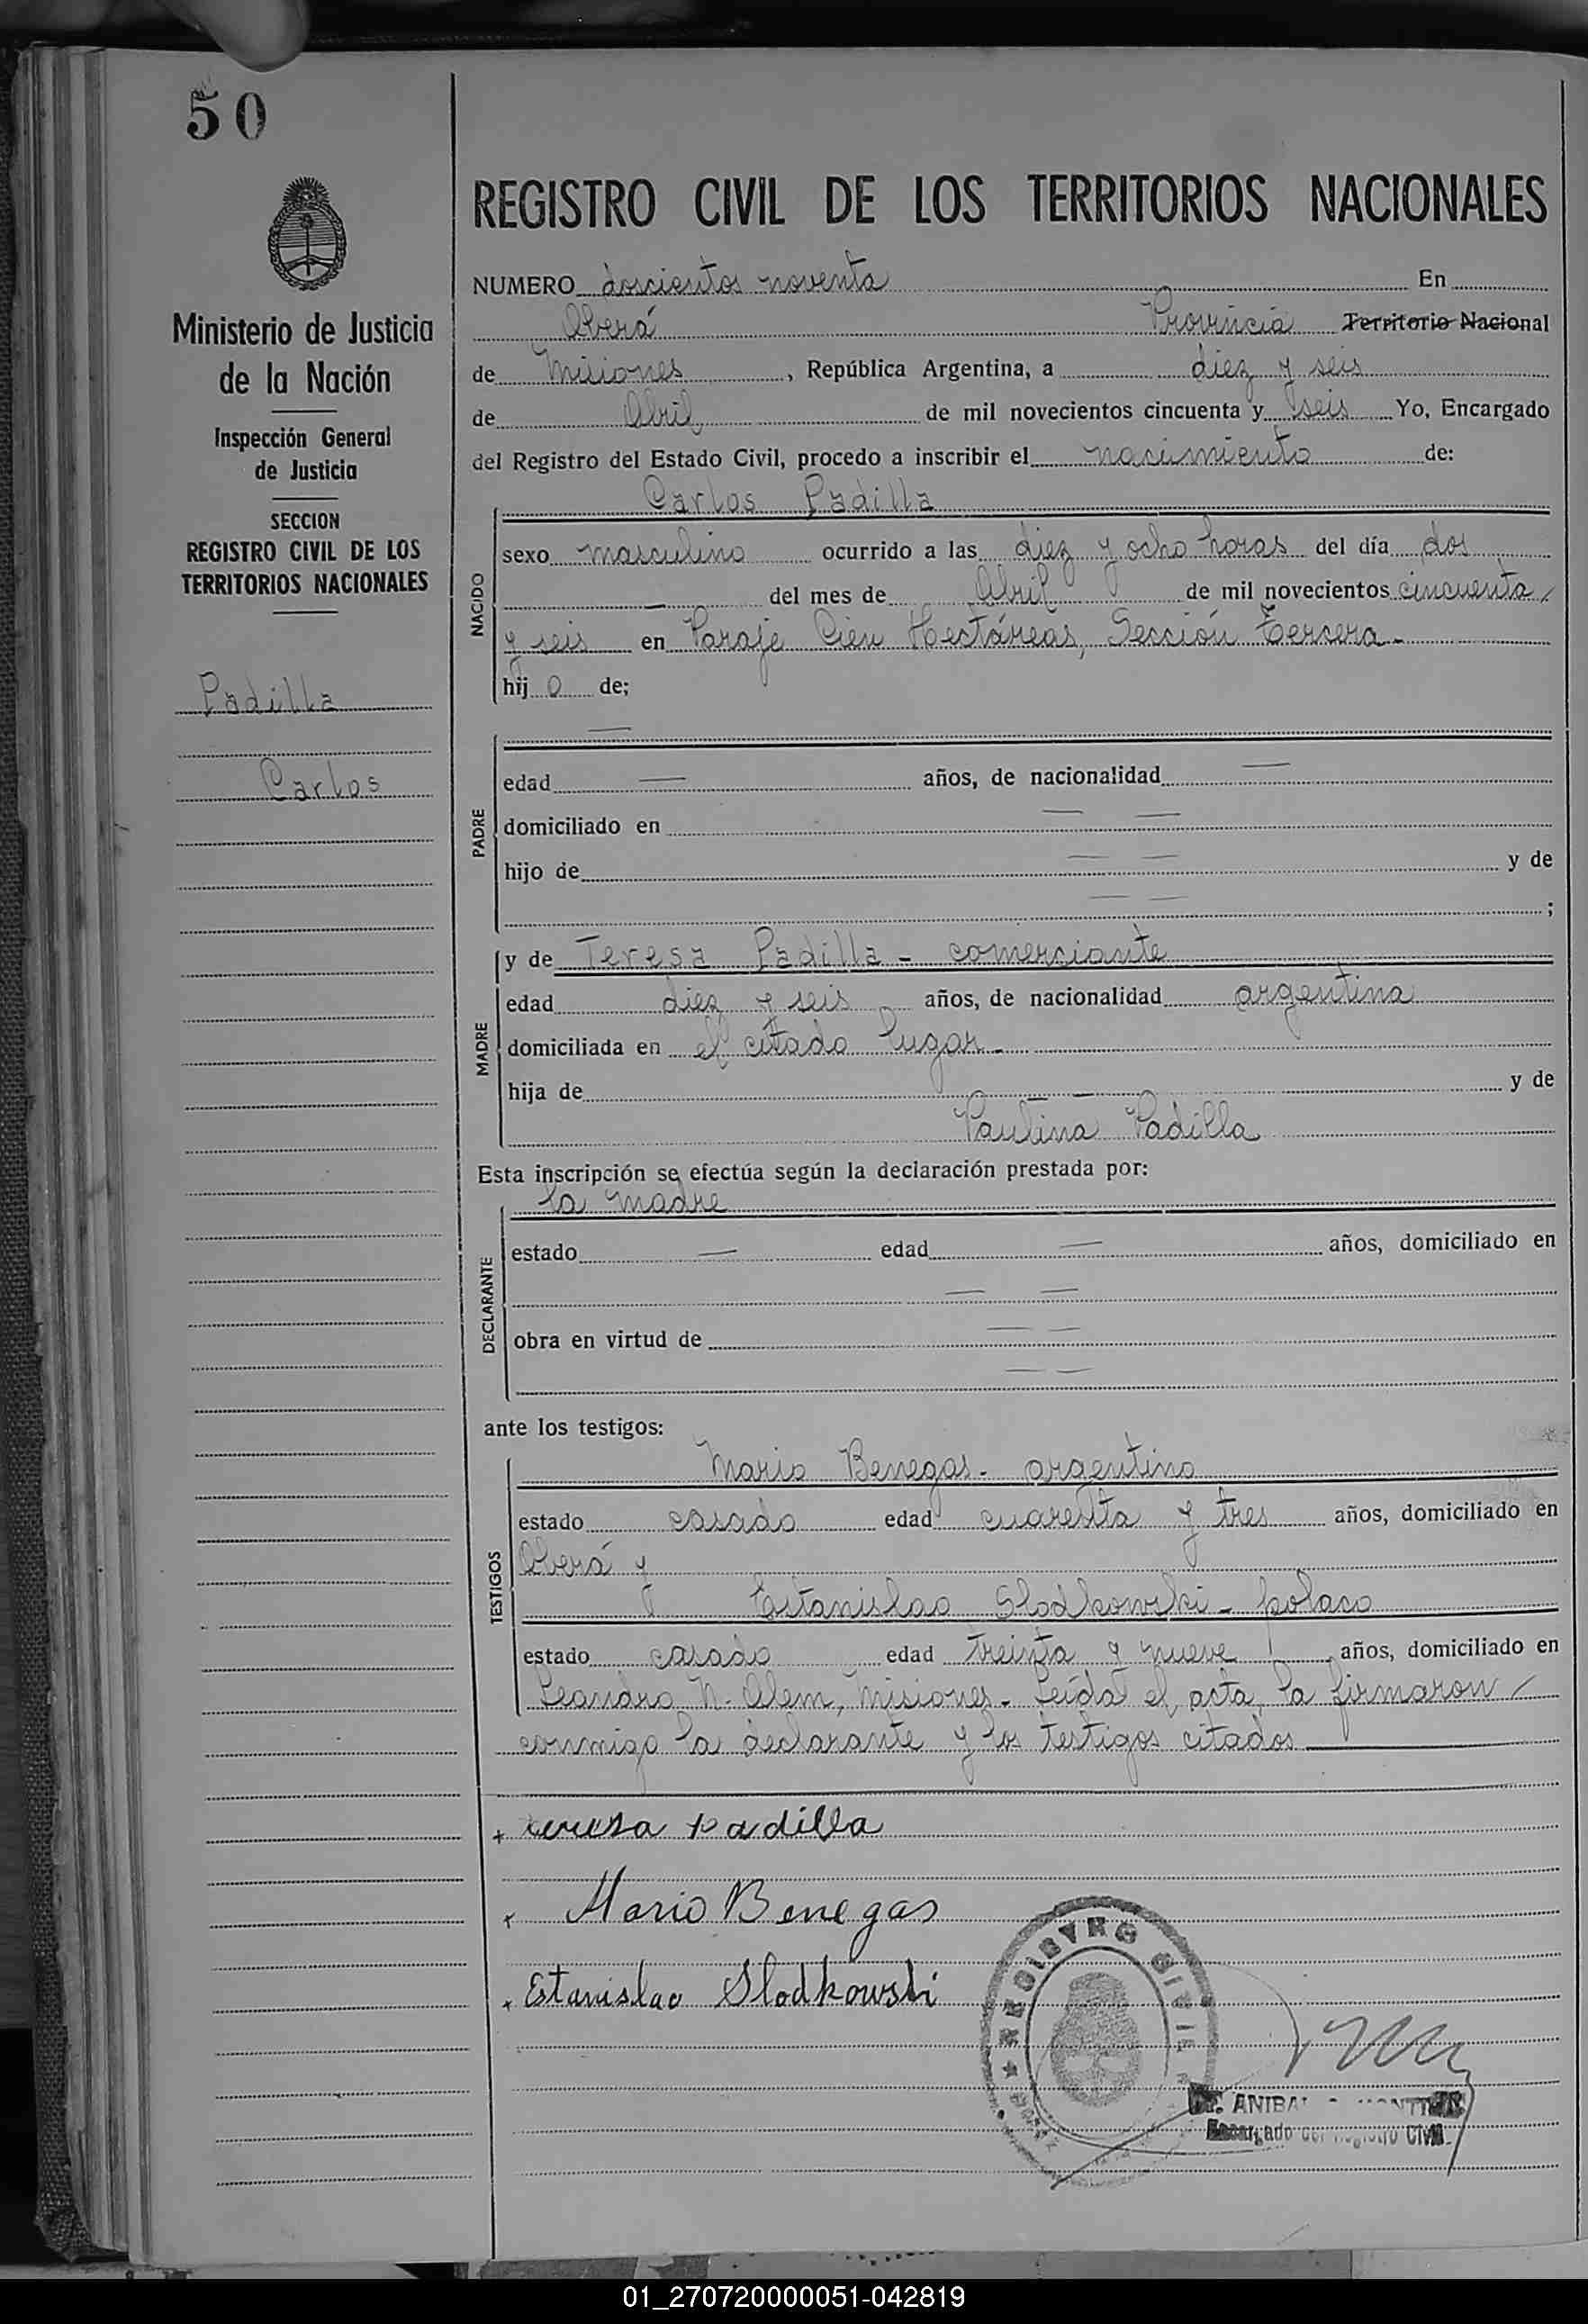 50
Ministerio de Justicia
de la Nación
Inspección General
de Justicia
SECCION
REGISTRO CIVIL DE LOS
TERRITORIOS NACIONALES
Padilla
Carlos
REGISTRO CIVIL DE LOS TERRITORIOS NACIONALES
NUMERO doscientos noventa En
Oberá Provincia Territorio Nacional
de Misiones, República Argentina, a diez y seis
de Abril de mil novecientos cincuenta y seis Yo, Encargado
del Registro del Estado Civil, procedo a inscribir el nacimiento de:
Carlos Padilla
NACIDO
sexo masculino ocurrido a las diez y ocho horas del día dos
— del mes de Abril de mil novecientos cincuenta
y seis en Paraje Cien Hectáreas, Sección Tercera -
hij o de;
—
PADRE
edad — años, de nacionalidad —
domiciliado en — —
hijo de — — y de
— — ;
y de Teresa Padilla - comerciante
MADRE
edad diez y seis años, de nacionalidad argentina
domiciliada en el citado lugar -
hija de — — y de
Paulina Padilla
Esta inscripción se efectúa según la declaración prestada por:
la madre
DECLARANTE
estado — edad — años, domiciliado en
— —
obra en virtud de — —
— —
ante los testigos:
TESTIGOS
Mario Benegas - argentino
estado casado edad cuarenta y tres años, domiciliado en
Oberá y
Estanislao Slodkowski - polaco
estado casado edad treinta y nueve años, domiciliado en
Leandro N. Alem, Misiones. Leída el acta, la firmaron
conmigo la declarante y los testigos citados
+ teresa padilla
Mario Benegas
Estanislao Slodkowski
REGISTRO CIVIL
ANIBAL
Encargado del Registro Civil
01_270720000051-042819